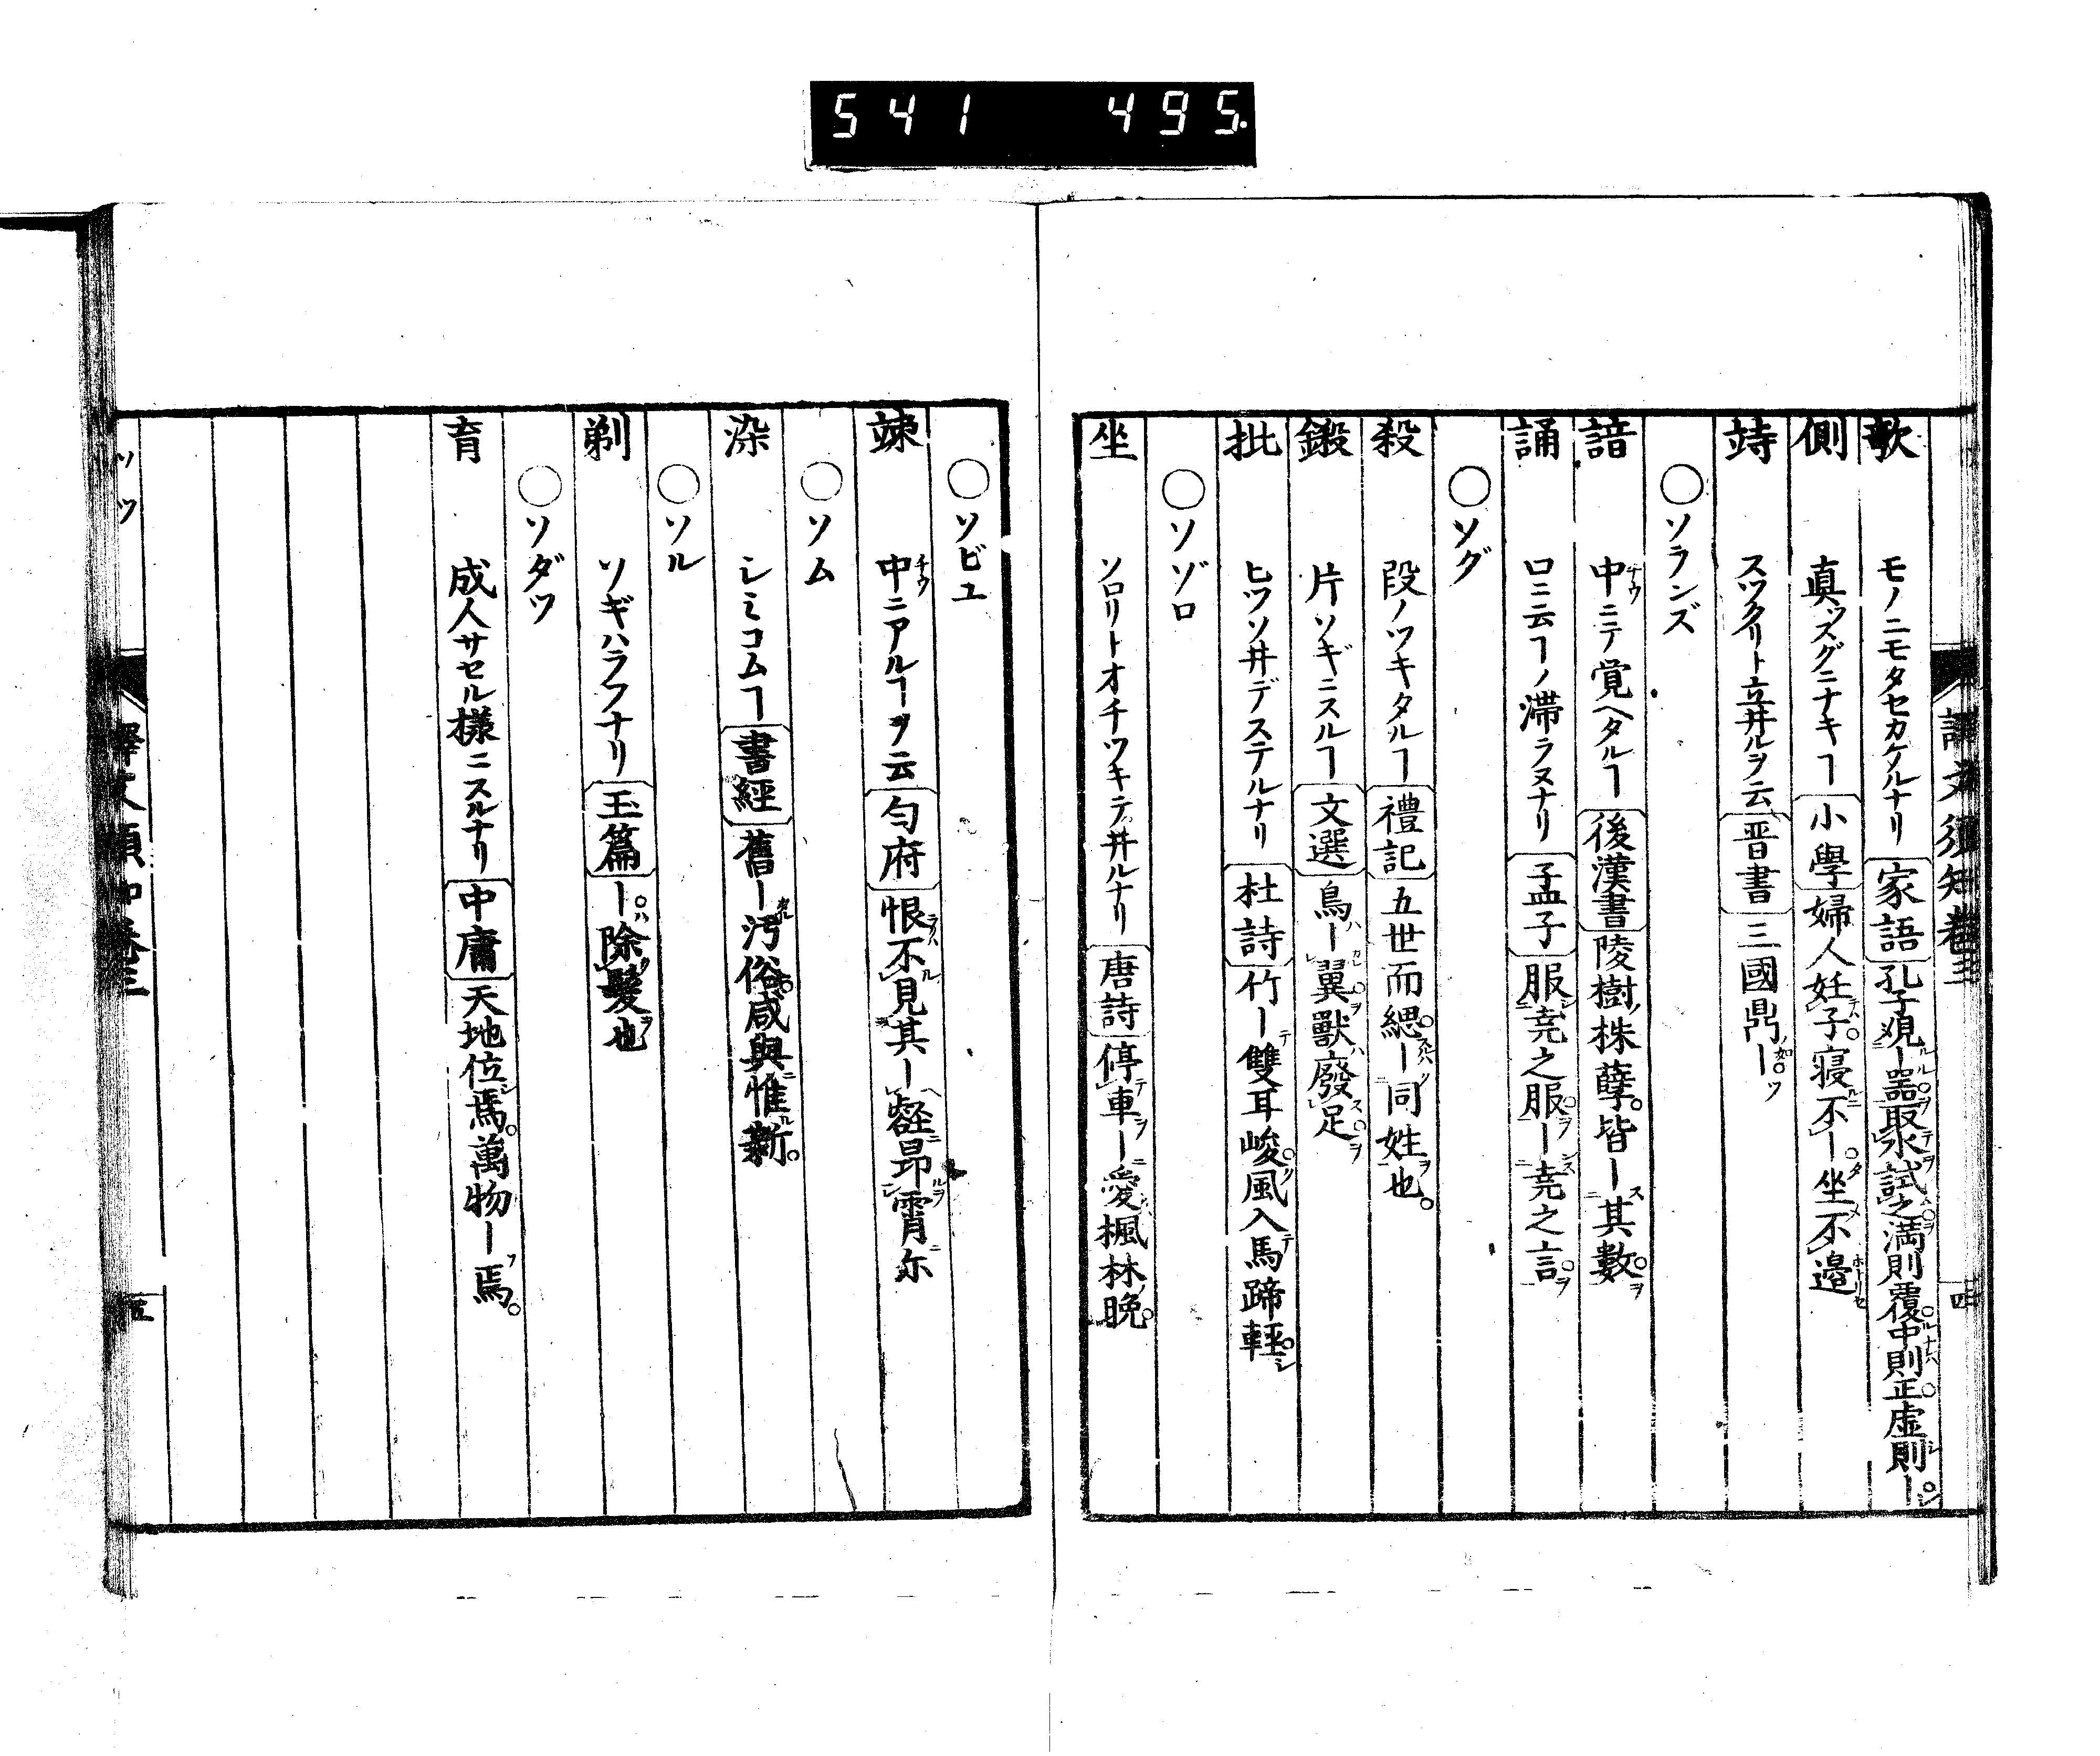 541 495.
譯文須知卷三 四
欹 モノニモタセカケルナリ 家語 孔子覌ー噐取水試之満則覆中則正虚則ー
側 真ッスグニナキヿ 小學 婦人妊子寝不ー坐不邉
竦 スツクリト立井ルヲ云 晋書 三國鼎ー
○ソランズ
諳 中ニテ覚ヘタルヿ 後漢書 陵樹株蘖皆ー其數
誦 口ニ云フノ滞ラヌナリ 孟子 服尭之服ー尭之言
○ソグ
殺 段ノツキタルヿ 禮記 五世而緦ー同姓也
鎩 片ソギニスルヿ 文選 鳥ー翼獸廢足
批 ヒツソ井デステルナリ 杜詩 竹ー雙耳峻風入馬蹄軽
○ソゾロ
坐 ソロリトオチツキテ井ルナリ 唐詩 停車ー愛楓林晩
○ソビユ
竦 中ニアルヿヲ云 匀府 恨不見其ー壑昂霄尓
○ソム
染 シミコムヿ 書經 舊ー汚俗咸與惟新
○ソル
剃 ソギハラフナリ 玉篇 ー除髮也
○ソダツ
育 成人サセル様ニスルナリ 中庸 天地位焉萬物ー焉
ソツ 譯文須知卷三 五